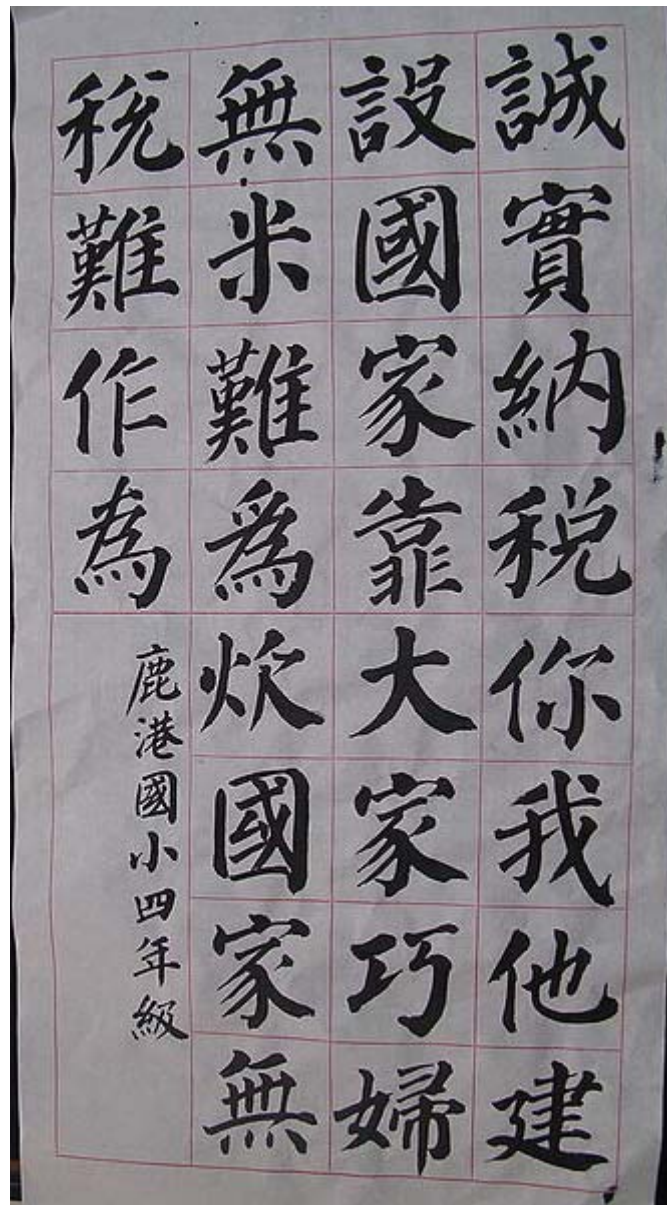 誠實納稅你我他建
設國家靠大家巧婦
無米難為炊國家無
稅難作為
鹿港國小四年級